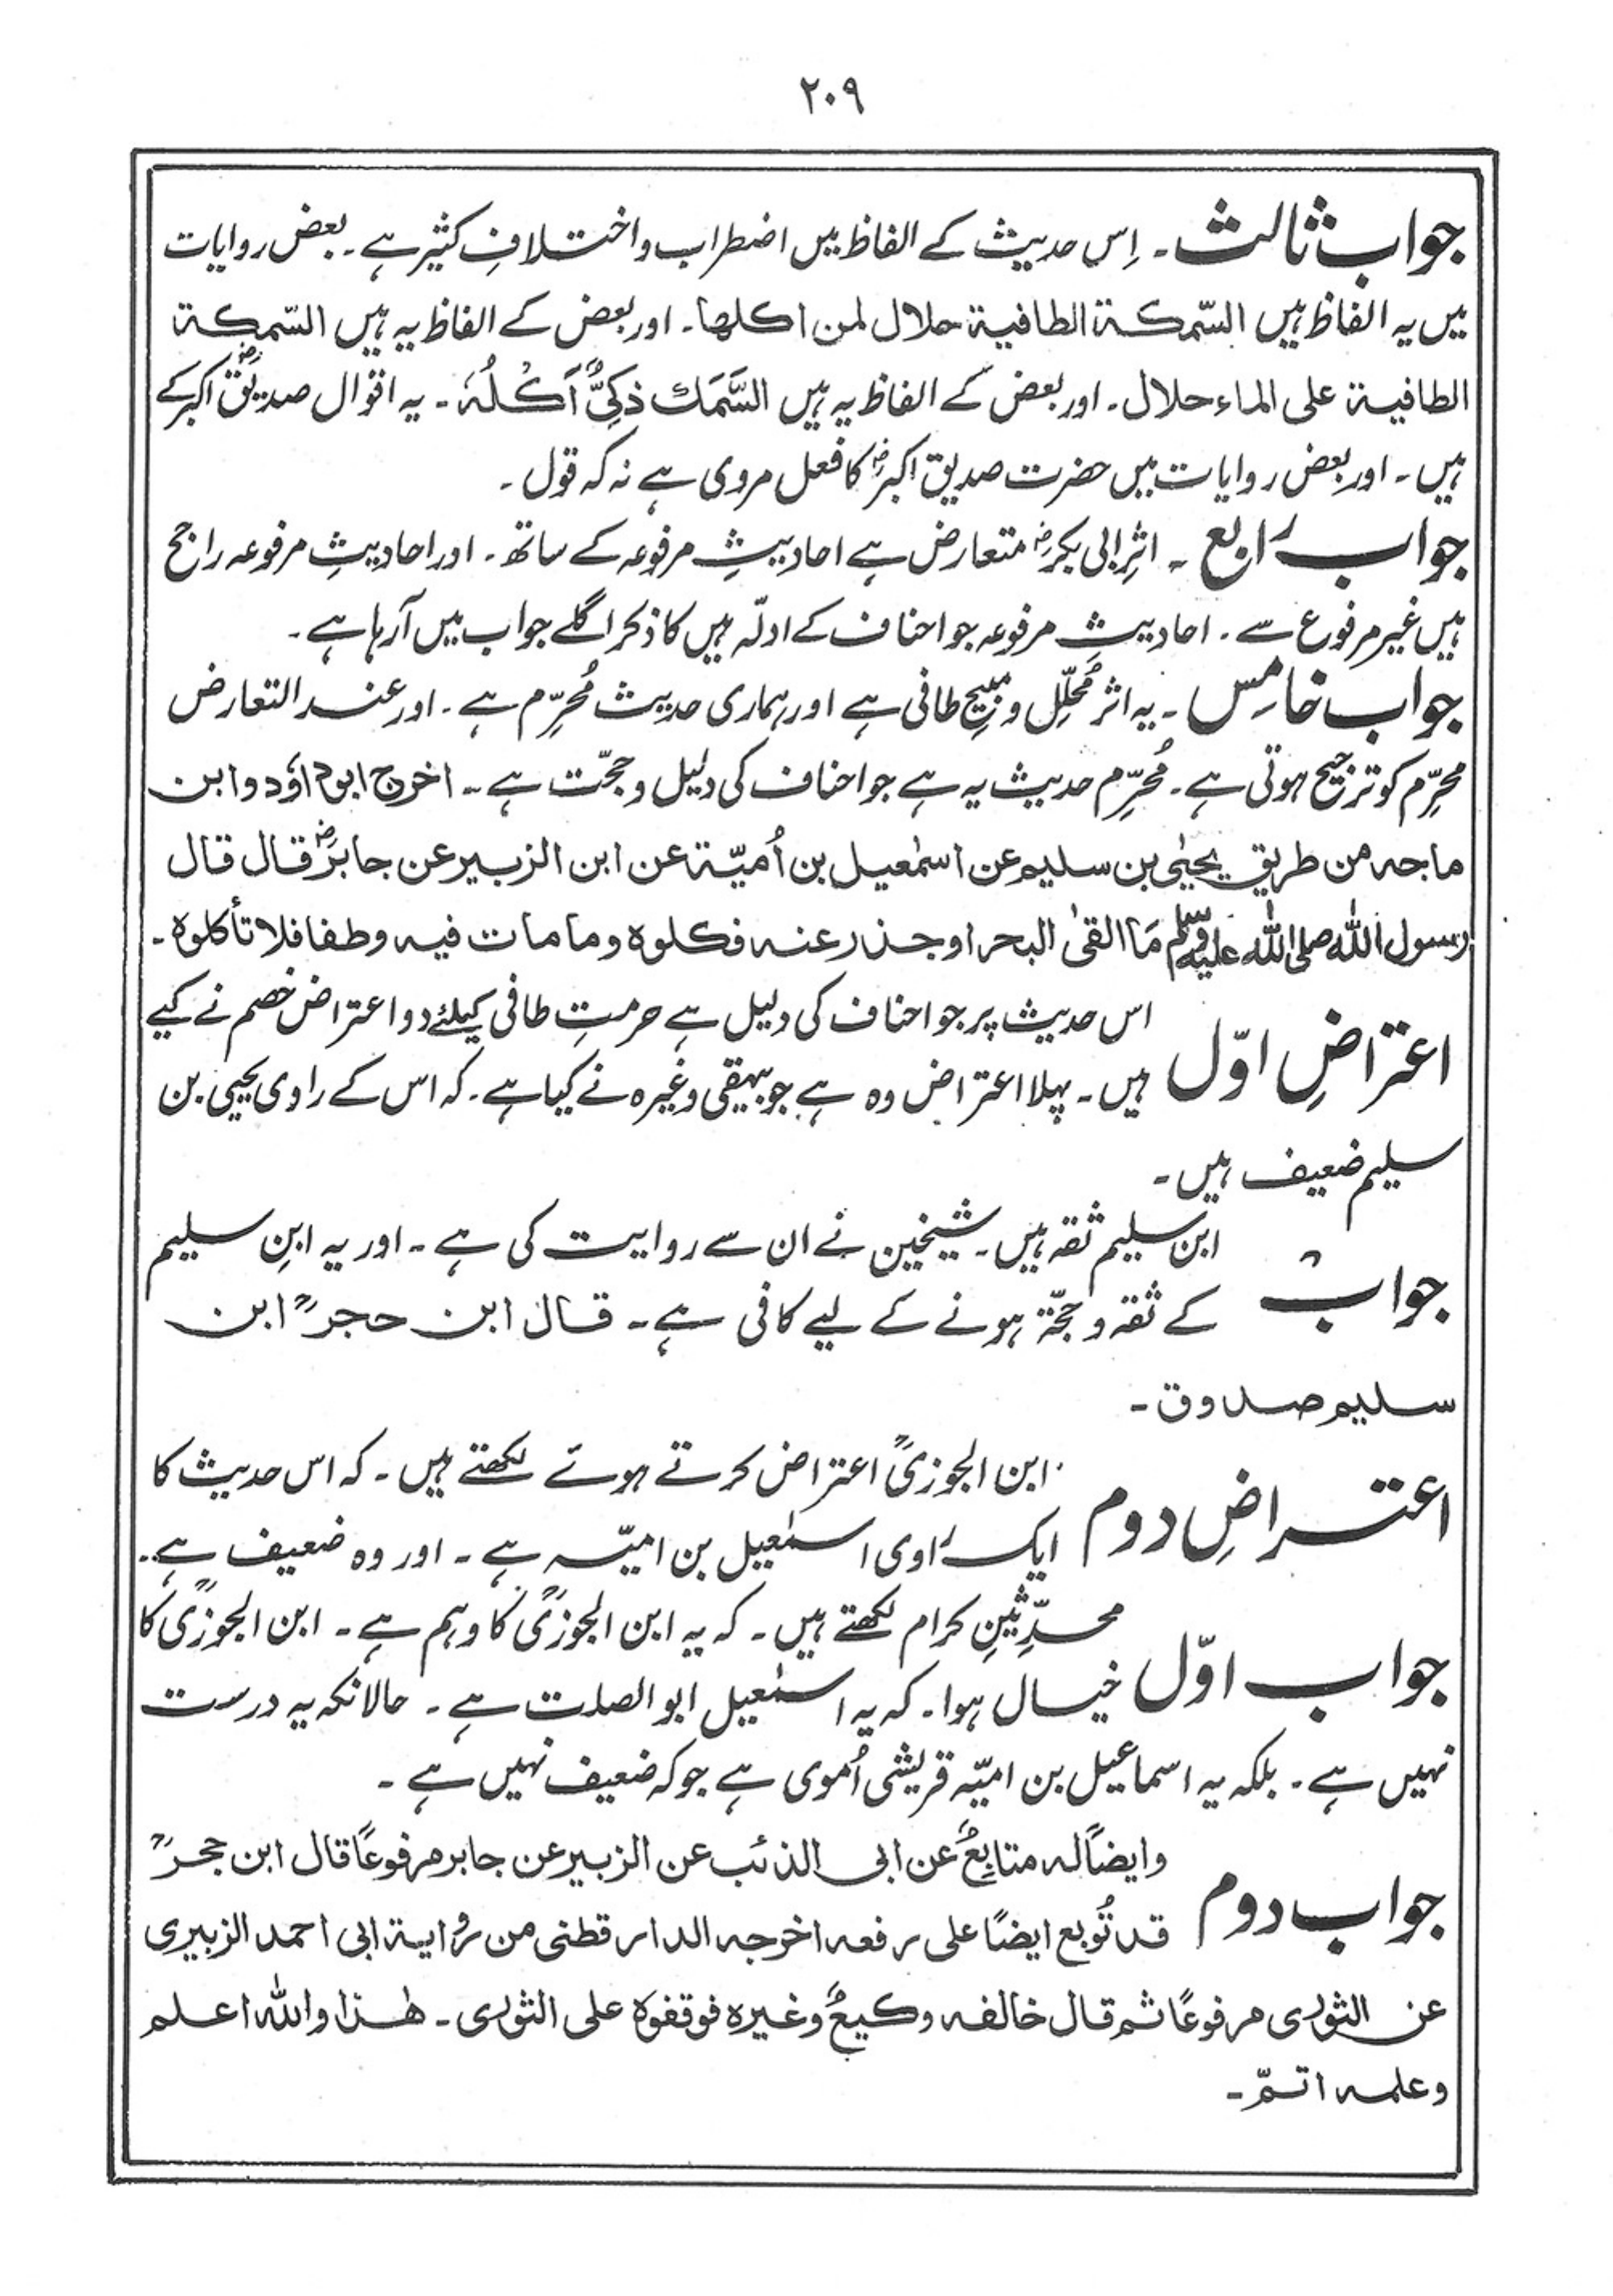 ۲۰۹
جواب ثالث ۔ اِس حدیث کے الفاظ میں اضطراب و اختلافِ کثیر ہے ۔ بعض روایات
میں یہ الفاظ ہیں السّمکة الطافیة حلال لمن اکلھا ۔ اور بعض کے الفاظ یہ ہیں السّمکة
الطافیة علی الماء حلال ۔ اور بعض کے الفاظ یہ ہیں السَّمَك ذکِیٌّ اَکْلُہٗ ۔ یہ اقوال صدیقؓ اکبر کے
ہیں ۔ اور بعض روایات میں حضرت صدیق اکبرؓ کا فعل مروی ہے نہ کہ قول ۔
جواب رابع ۔ اثرِ ابی بکرؓ متعارض ہے احادیثِ مرفوعہ کے ساتھ ۔ اور احادیثِ مرفوعہ راجح
ہیں غیر مرفوع سے ۔ احادیثِ مرفوعہ جو احناف کے ادلّہ ہیں کا ذکر اگلے جواب میں آرہا ہے ۔
جواب خامس ۔ یہ اثر مُحلِّل و مبیحِ طافی ہے اور ہماری حدیث مُحرِّم ہے ۔ اور عند التعارض
محرِّم کو ترجیح ہوتی ہے ۔ مُحرِّم حدیث یہ ہے جو احناف کی دلیل و حجّت ہے ۔ اخرج ابوداؤد و ابن
ماجہ من طریق یحییٰ بن سلیم عن اسمٰعیل بن اُمیّة عن ابن الزبیر عن جابرؓ قال قال
رسول اللہ صلی اللہ علیہ وسلم مَا القیٰ البحر او جذر عنہ فکلوہ وما مات فیہ وطفا فلا تأکلوہ ۔
اعتراضِ اوّل اس حدیث پر جو احناف کی دلیل ہے حرمتِ طافی کیلئے دو اعتراض خصم نے کیے
ہیں ۔ پہلا اعتراض وہ ہے جو بیہقی وغیرہ نے کیا ہے ۔ کہ اس کے راوی یحیی بن
سلیم ضعیف ہیں ۔
جواب ابن سلیم ثقہ ہیں ۔ شیخین نے ان سے روایت کی ہے ۔ اور یہ ابنِ سلیم
کے ثقہ و حجّۃ ہونے کے لیے کافی ہے ۔ قال ابن حجرؒ ابن
سلیم صدوق ۔
اعتراضِ دوم ابن الجوزیؒ اعتراض کرتے ہوئے لکھتے ہیں ۔ کہ اس حدیث کا
ایک راوی اسمٰعیل بن امیّہ ہے ۔ اور وہ ضعیف ہے ۔
جواب اوّل محدِّثینِ کرام لکھتے ہیں ۔ کہ یہ ابن الجوزیؒ کا وہم ہے ۔ ابن الجوزیؒ کا
خیال ہوا ۔ کہ یہ اسمٰعیل ابو الصلت ہے ۔ حالانکہ یہ درست
نہیں ہے ۔ بلکہ یہ اسماعیل بن امیّہ قریشی اُموی ہے جو کہ ضعیف نہیں ہے ۔
جواب دوم وایضًا لہ متابِعٌ عن ابی الذئب عن الزبیر عن جابر مرفوعًا قال ابن حجرؒ
قد تُوبع ایضًا علی رفعہ اخرجہ الدارقطنی من روایة ابی احمد الزبیری
عن الثوری مرفوعًا ثم قال خالفہ وکیعٌ وغیرہ فوقفوہ علی الثوری ۔ ھٰذا واللہ اعلم
وعلمہ اتمّ ۔